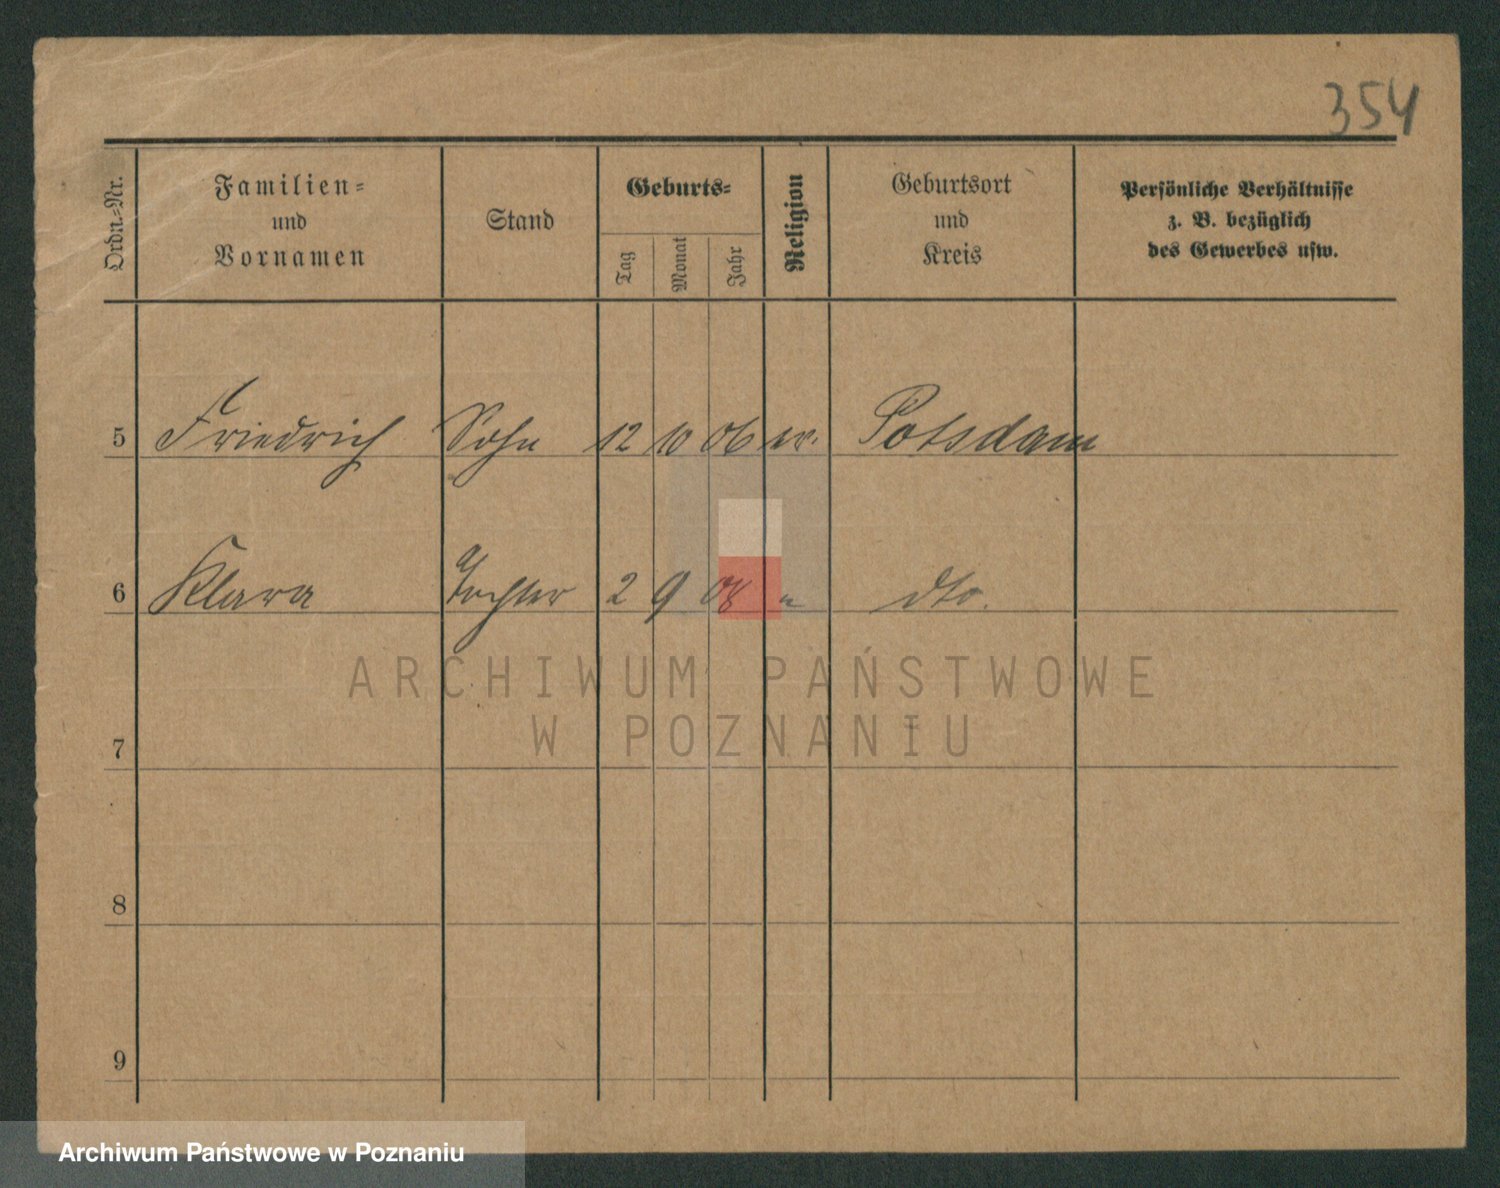 354
Ordn.-Nr.
Familien-
und
Vornamen
Stand
Geburts-
Tag
Monat
Jahr
Religion
Geburtsort
und
Kreis
Persönliche Verhältnisse
z. B. bezüglich
des Gewerbes usw.
5 Friedrich Sohn 12 10 06 ev. Potsdam
6 Klara Tochter 2 9 08 " dto.
ARCHIWUM PAŃSTWOWE
W POZNANIU
7
8
9
Archiwum Państwowe w Poznaniu